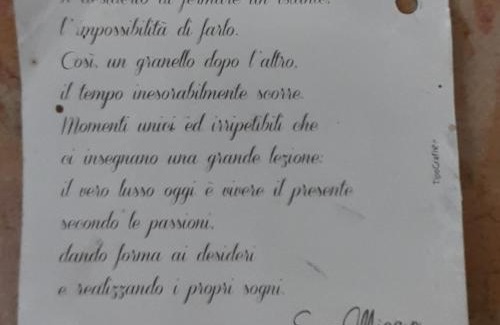 il desiderio di fermare un istante,
l'impossibilità di farlo.
Così, un granello dopo l'altro,
il tempo inesorabilmente scorre.
Momenti unici ed irripetibili che
ci insegnano una grande lezione:
il vero lusso oggi è vivere il presente
secondo le passioni,
dando forma ai desideri
e realizzando i propri sogni.
TipoGrafie